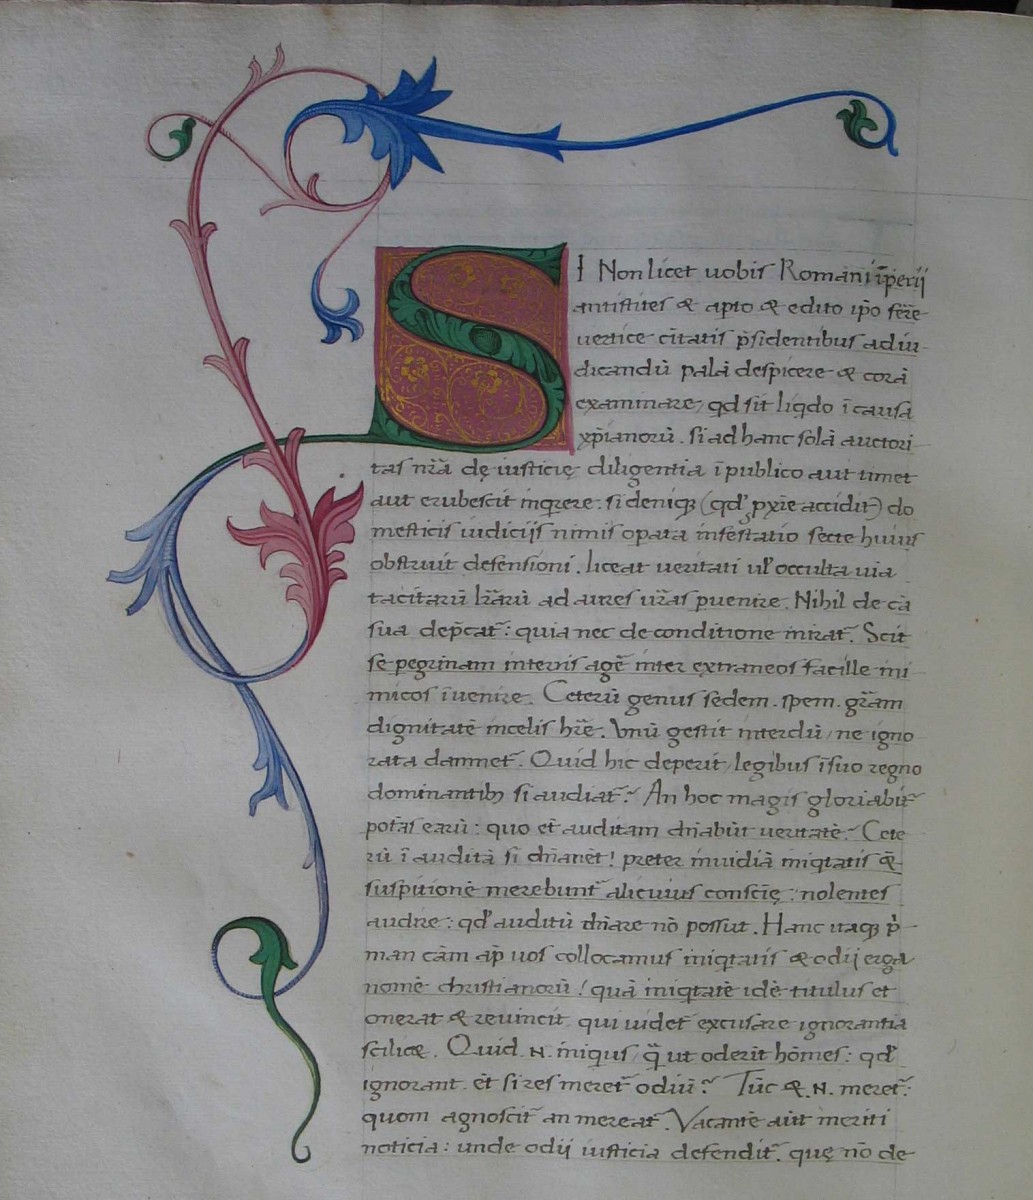 SI Non licet uobis Romani īperij
antistites & apto & edito ip̄o fer̄e
uertice cītatis p̄sidentibus ad iu-
dicandū palā despicere & corā
examinare, qd sit liq̇do ī causa
xp̄ianorū . si ad hanc solā auctori
tas nr̄a dę iusticię diligentia ī publico aut timet
aut erubescit inq̇rere : si deniq; (qd' pxīe accidit) do
mesticis iudicijs nimis opata infestatio secte huius
obstruit defensioni . liceat ueritati ul' occulta uia
tacitarū lr̄arū ad aures ur̄as puenire. Nihil de cā
sua dep̄cat~ : quia nec de conditione mirat~. Scit
se pegrinam interris agē inter extraneos facille ini
micos īuenire . Ceterū genus sedem . spem . gr̄am
dignitatē incelis hr̄e. Vnū gestit interdū / ne igno
rata damnet~. Quid hic deperit / legibus īsuo regno
dominantib; si audiat~? An hoc magis gloriabit~
potās earū : quo et auditam dn̄abūt ueritatē? Cete
rū ī auditā si dn̄anēt! preter inuidiā iniq̇tatis &
suspitionē merebunt~ alicuius conscię : nolentes
audire : qd' auditū dn̄are nō possut . Hanc itaq; p̄
mam cām ap̄ uos collocamus iniq̇tatis & odij erga
nomē christianorū ! quā iniq̇tatē idē titulus et
onerat & reuincit qui uidet~ excusare ignorantia
scilicę. Quid .N. iniquis / q̄ ut oderīt hōmes : qd'
ignorant . et si res meret~ odiū? Tūc & .N. meret~:
quom agnoscit~ an mereat~. Vacante aūt meriti
noticia : unde odij iusticia defendit~. quę nō de-